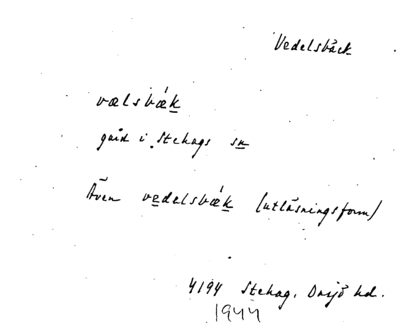 Vedelsbäck
vælsbǽk
gård i Stehags sn
Även vedelsbǽk (utläsningsform)
4194 Stehag, Onsjö hd.
1944